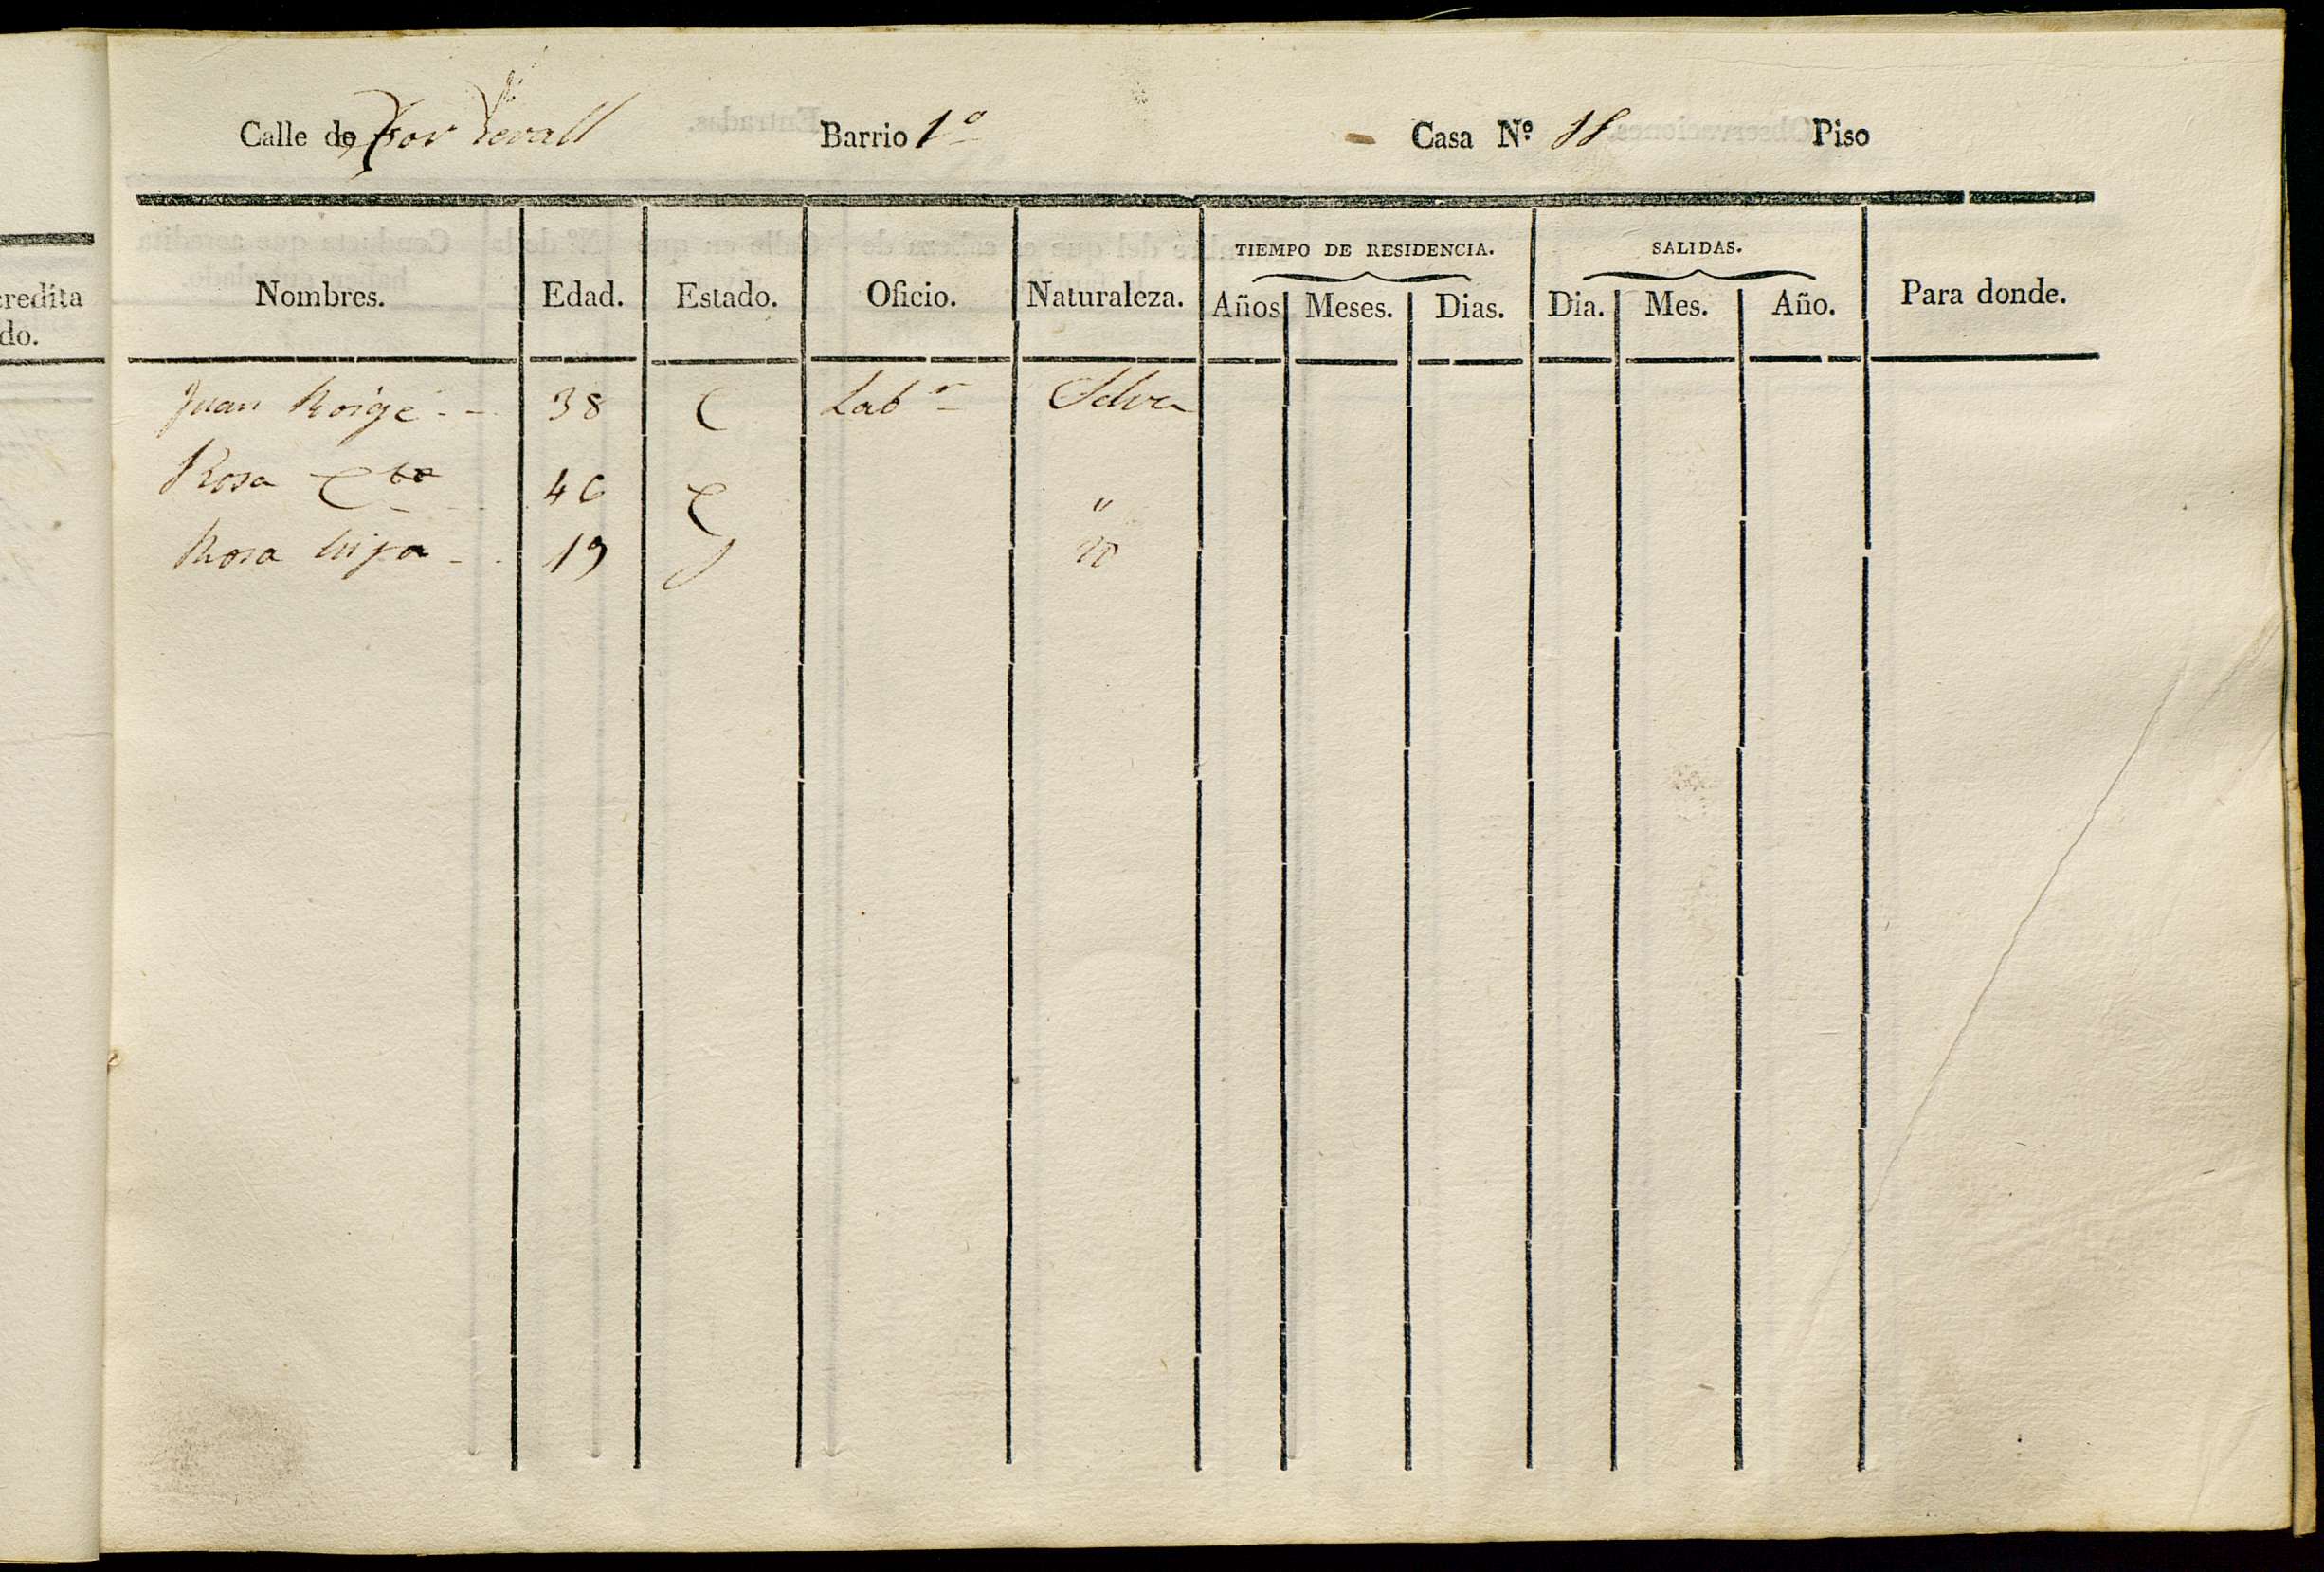 Calle de Barrio 1º Casa Nº Piso
TIEMPO DE RESIDENCIA. SALIDAS.
Nombres. Edad. Estado. Oficio. Naturaleza. Años Meses. Dias. Dia. Mes. Año. Para donde.
credita
do.
Juan Roige - - 38 C Labr Selva
Rosa 46 C "
Rosa hija - - 19 "